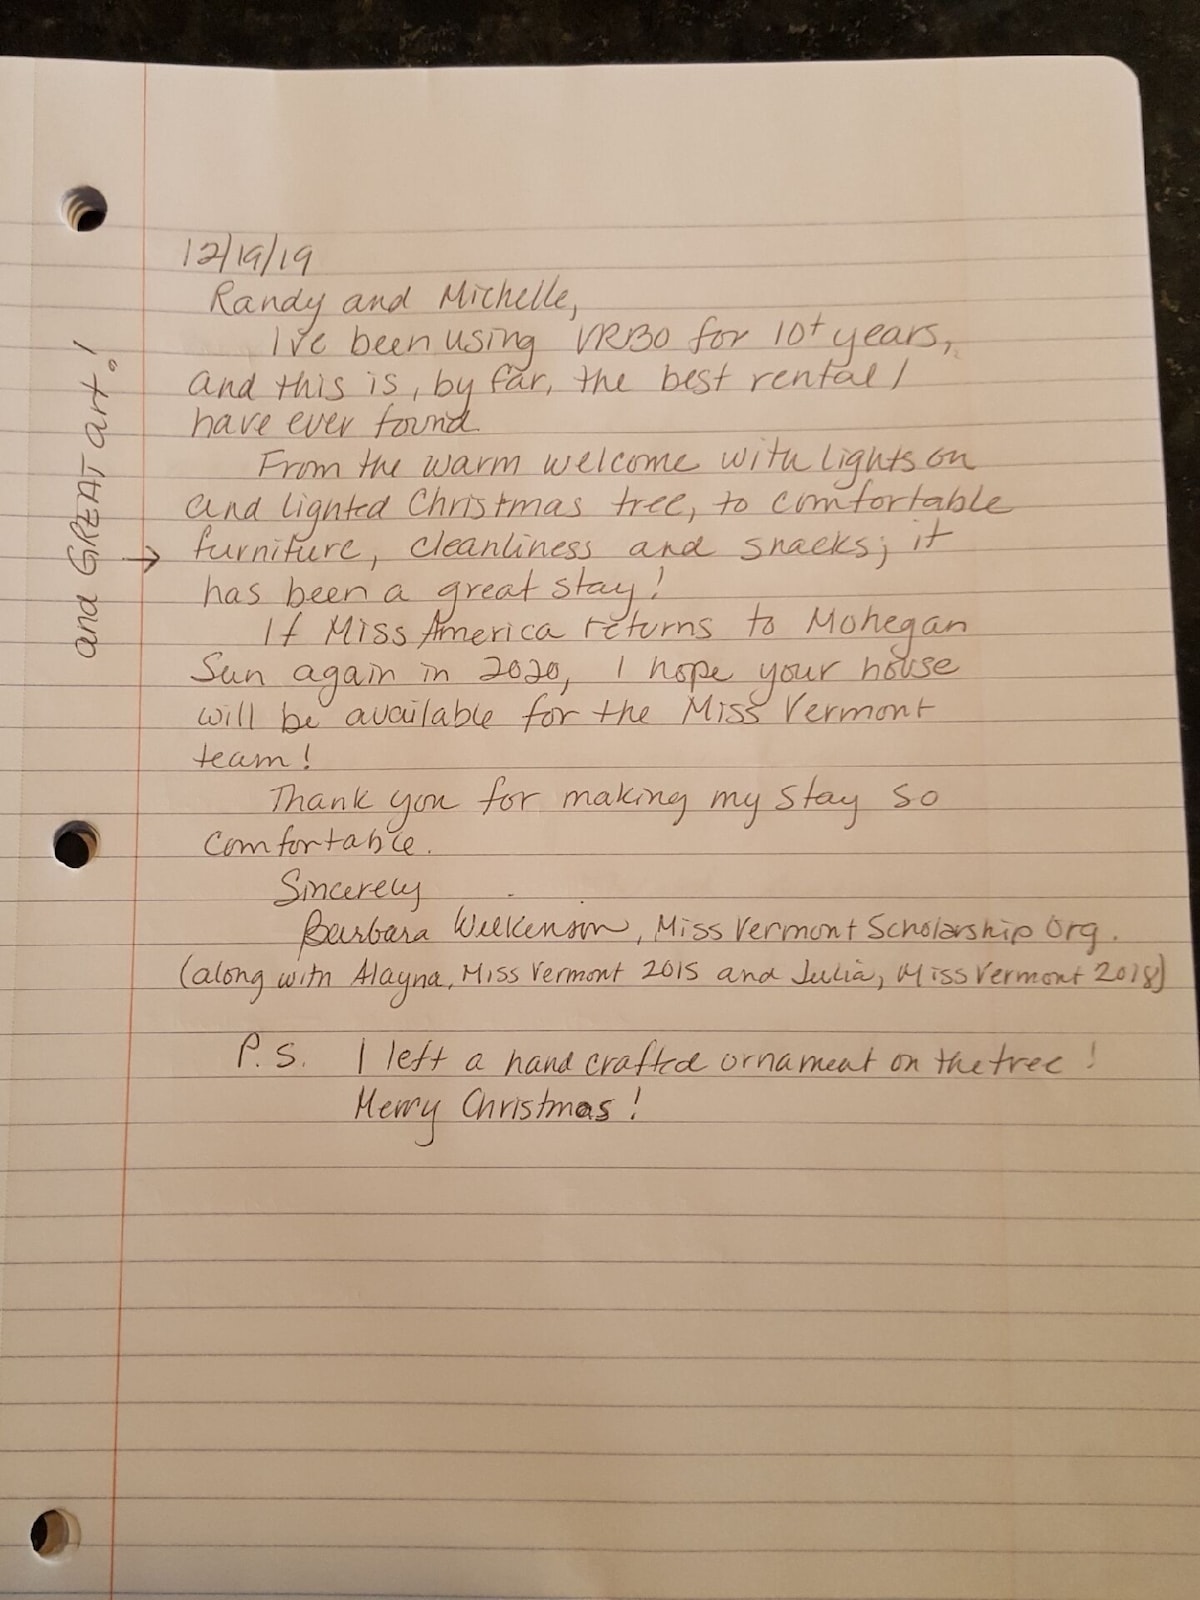 12/19/19
Randy and Michelle,
I've been using VRBO for 10+ years,
and this is, by far, the best rental I
have ever found.
From the warm welcome with lights on
and lighted Christmas tree, to comfortable
and GREAT art! → furniture, cleanliness and snacks; it
has been a great stay!
If Miss America returns to Mohegan
Sun again in 2020, I hope your house
will be available for the Miss Vermont
team!
Thank you for making my stay so
comfortable.
Sincerely
Barbara Wilkenson, Miss Vermont Scholarship Org.
(along with Alayna, Miss Vermont 2015 and Julia, Miss Vermont 2018)
P.S. I left a hand crafted ornament on the tree!
Merry Christmas!